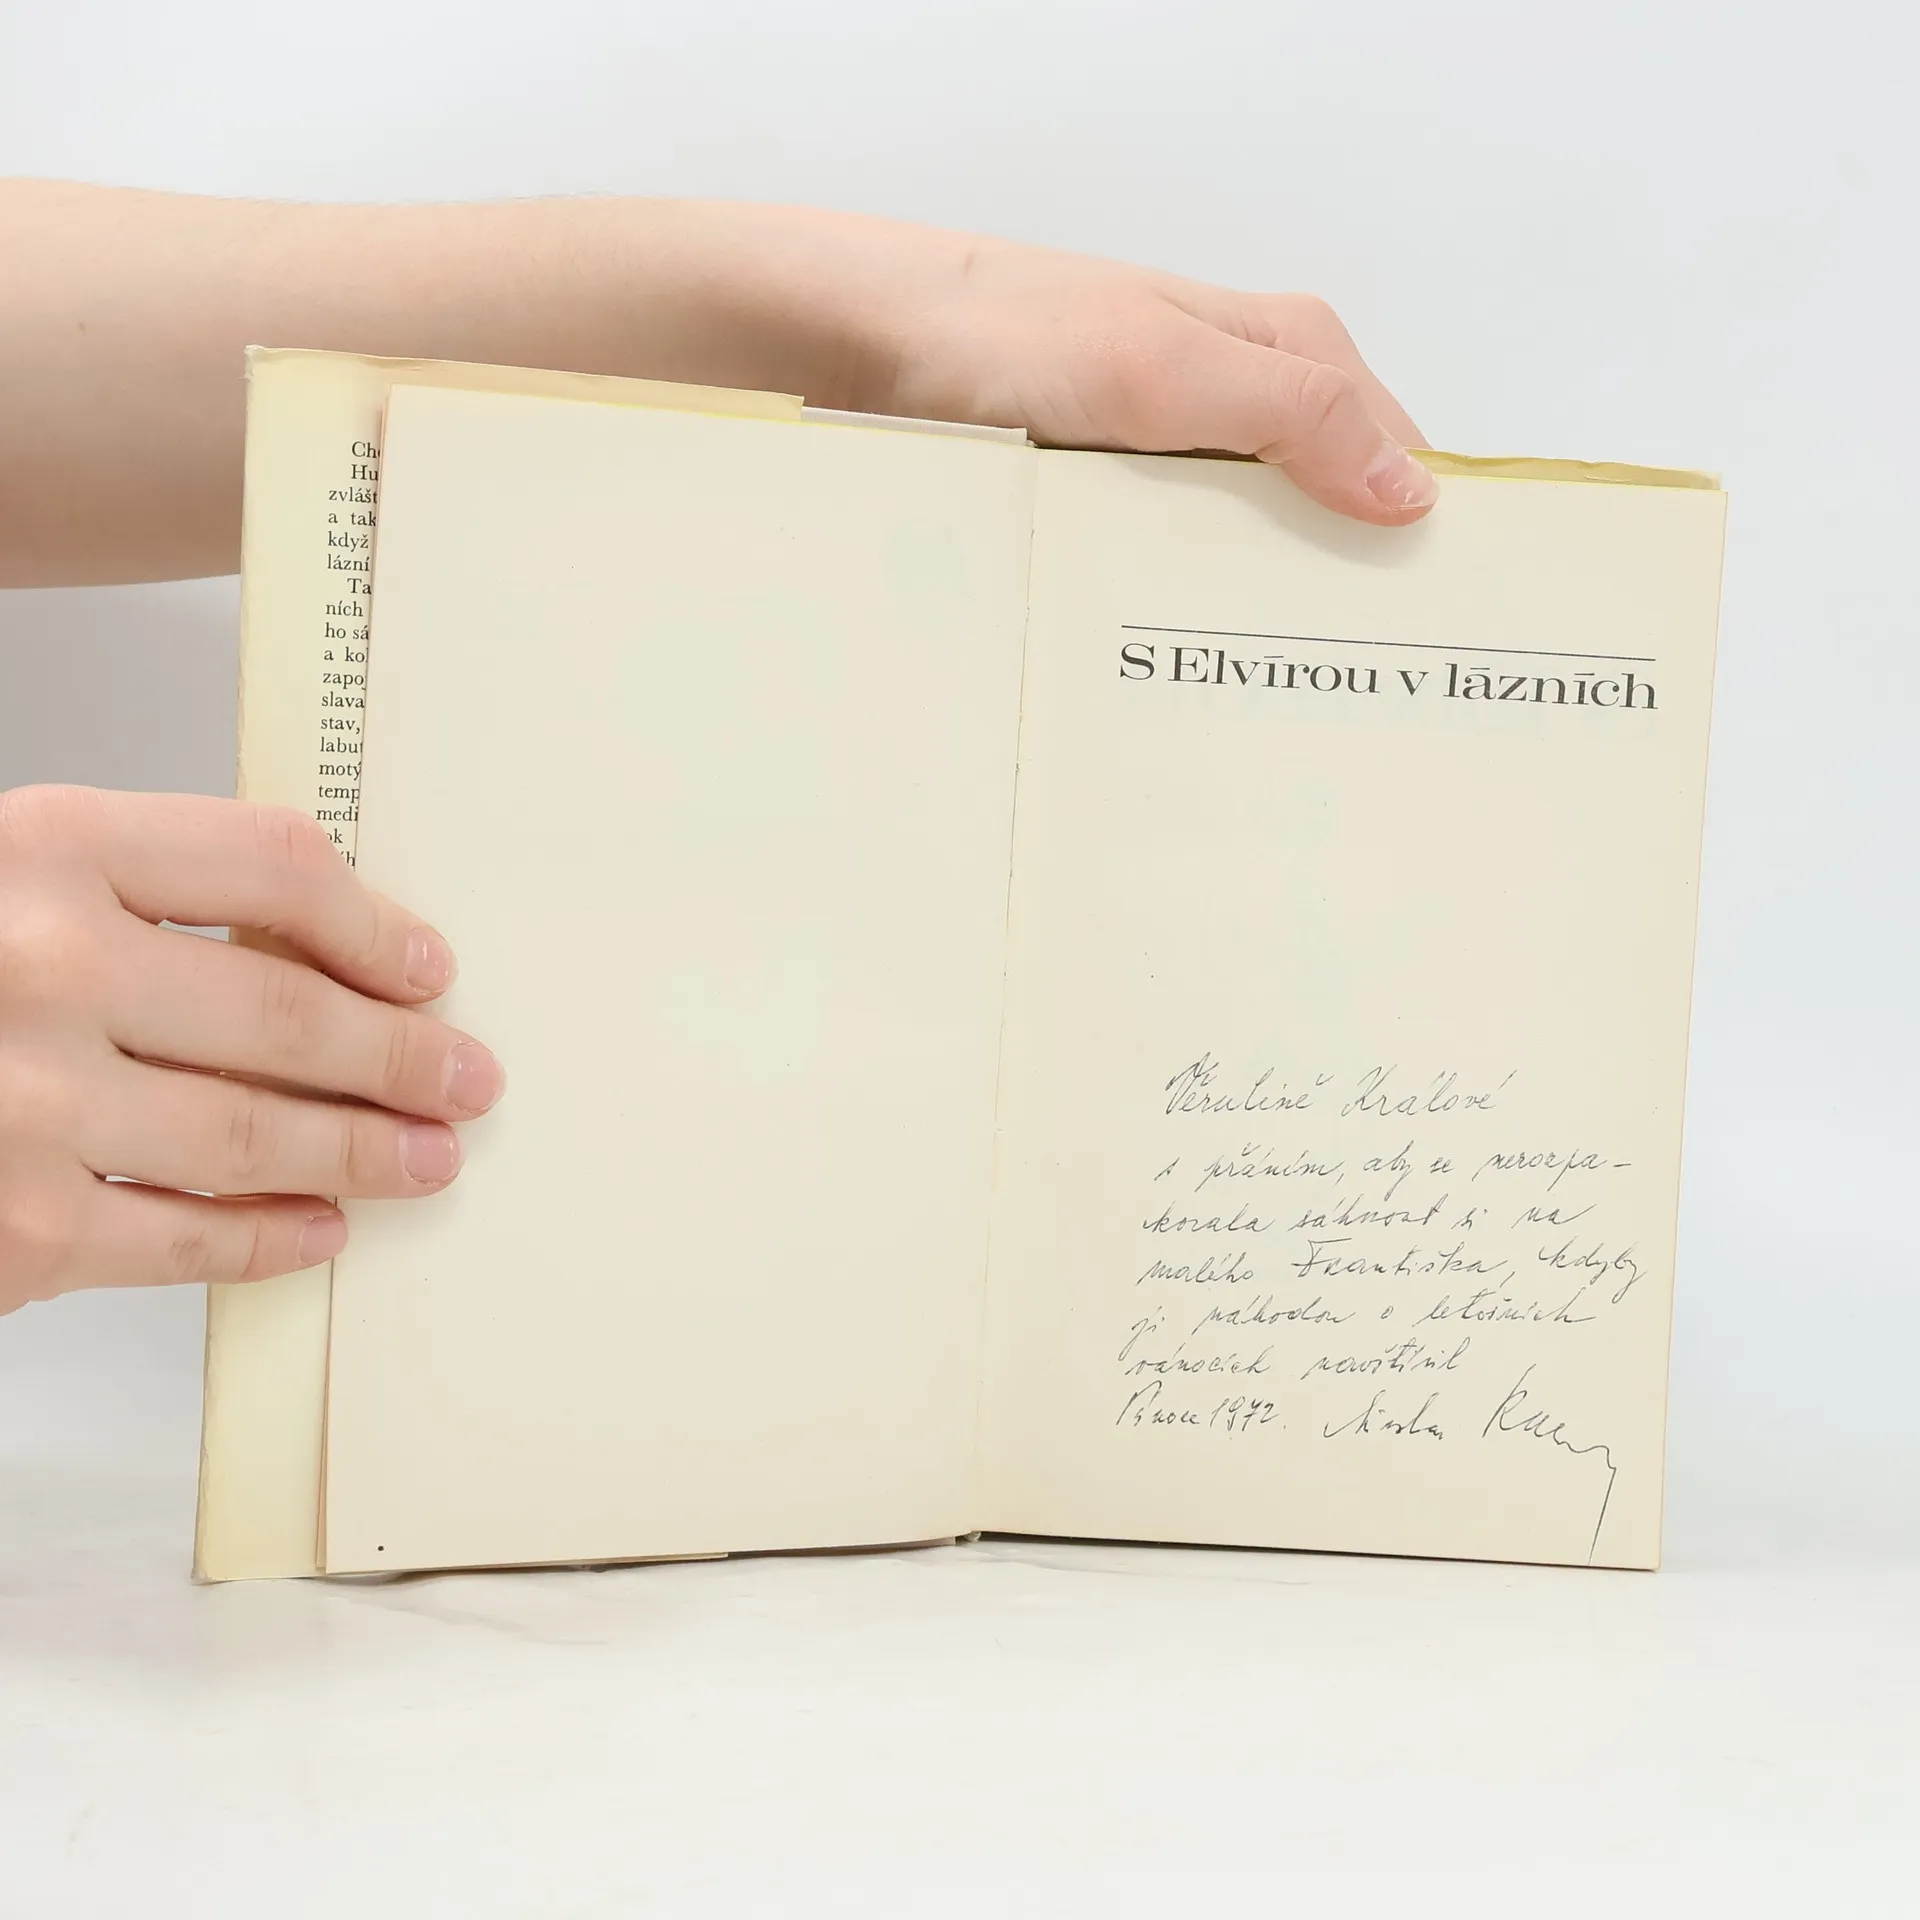 Ch
Hu
zvlášt
a tak
když
lázní
Ta
ních
ho sá
a kol
zapo
slava
stav,
labut
motý
temp
medi
ok
S Elvírou v lázních
Věrulině Králové
s přáním, aby se nerozpa-
kovala sáhnout si na
malého Františka, kdyby
ji náhodou o letošních
vánocích navštívil
Vánoce 1972.